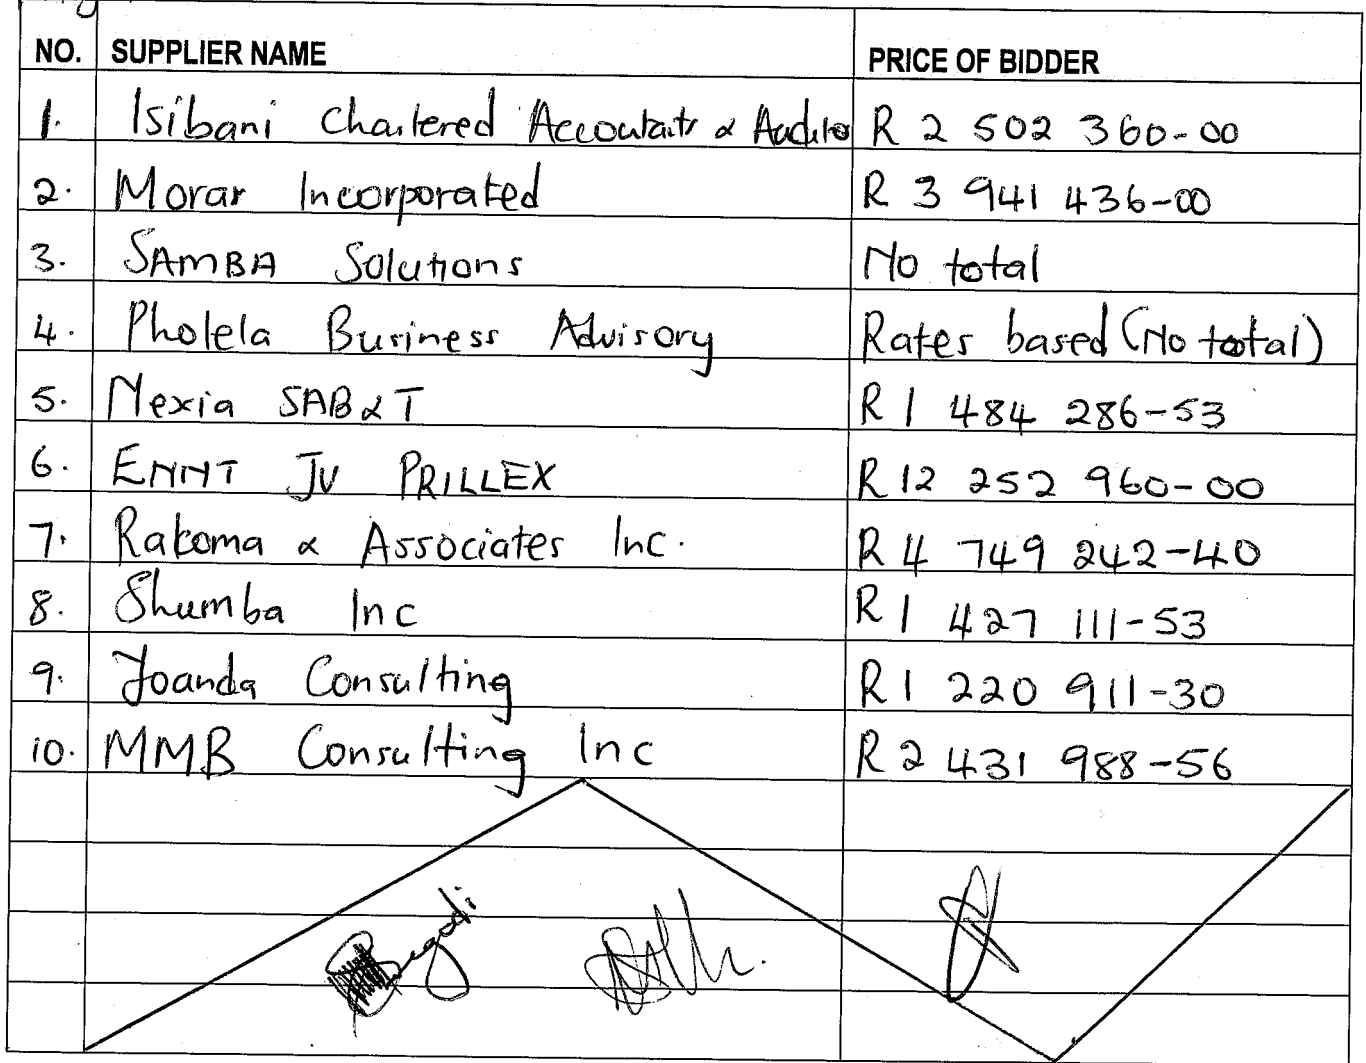 NO. SUPPLIER NAME PRICE OF BIDDER
1. Isibani Chartered Accountants & Audito R 2 502 360-00
2. Morar Incorporated R 3 941 436-00
3. SAMBA Solutions No total
4. Pholela Business Advisory Rates based (No total)
5. Nexia SAB&T R 1 484 286-53
6. ENNT JV PRILLEX R 12 252 960-00
7. Rakoma & Associates Inc. R 4 749 242-40
8. Shumba Inc R 1 427 111-53
9. Joanda Consulting R 1 220 911-30
10. MMB Consulting Inc R 2 431 988-56